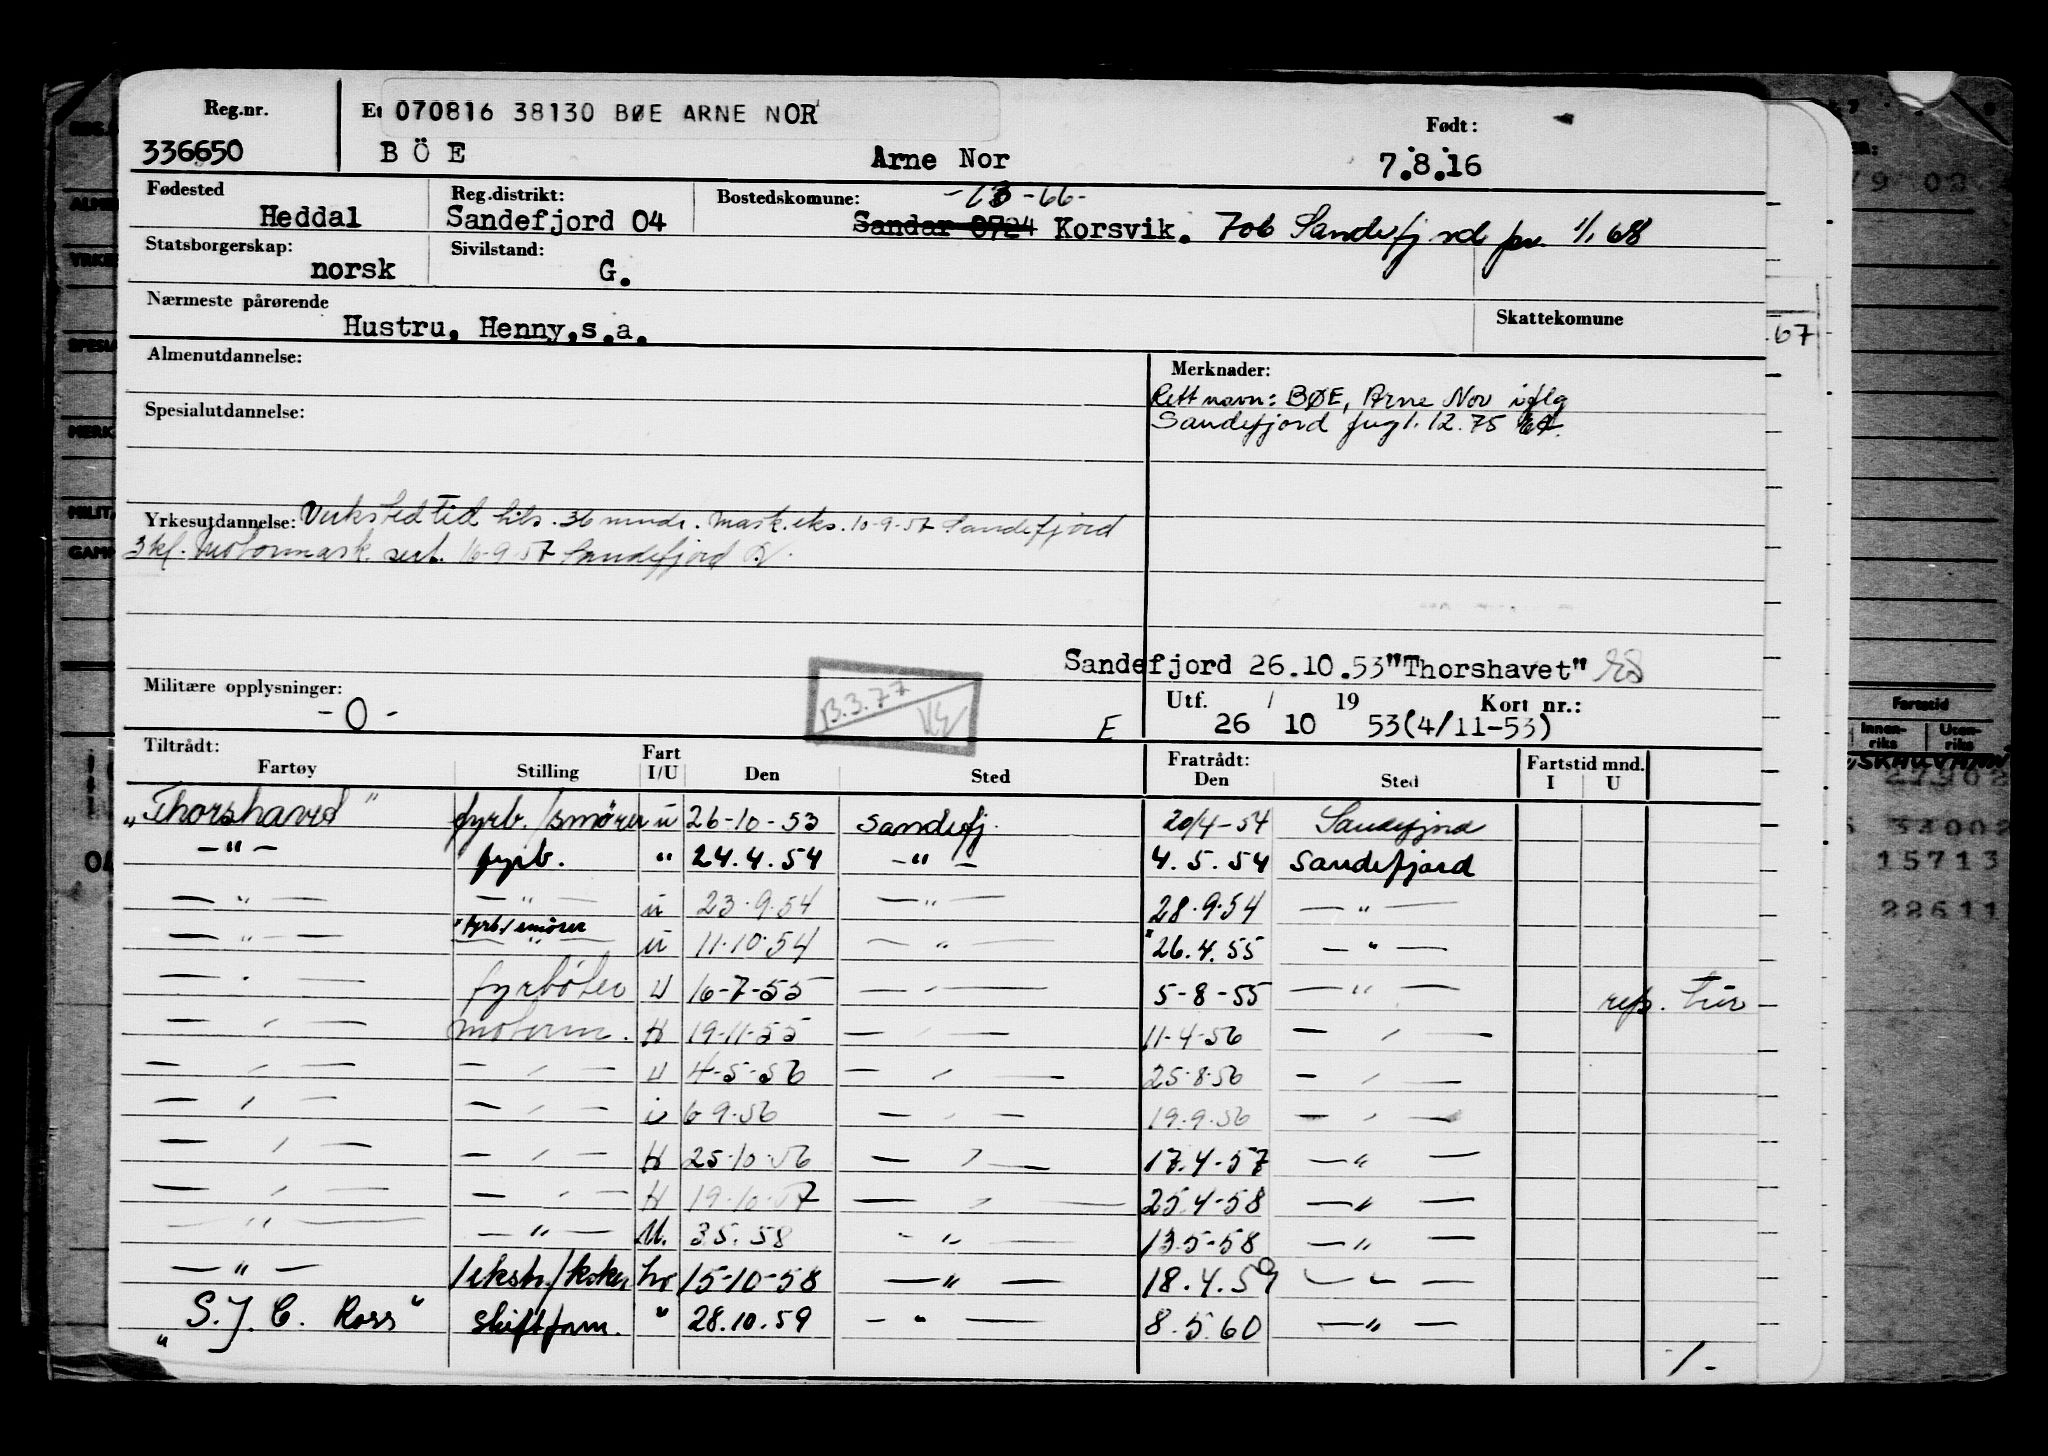 Reg.nr. Et 070816 38130 BØE ARNE NOR Født:
336650 B Ö E Arne Nor 7.8.16
Fødested Reg.distrikt: Bostedskomune: -13-66-
Heddal Sandefjord 04 Sandar 0724 Korsvik. 706 Sandefjord pr. 1/1 68
Statsborgerskap: Sivilstand:
norsk G.
Nærmeste pårørende Skattekomune
Hustru, Henny,s.a.
67
Almenutdannelse: Merknader:
Rett navn: BØE, Arne Nor iflg
Spesialutdannelse: Sandefjord fugl. 12.75
Yrkesutdannelse: Verksted tid tils. 36 mndr. Mask.eks. 10-9-57 Sandefjord
3 kl. Motormask. sert. 16-9-57 Sandefjord
Sandefjord 26.10.53"Thorshavet"
Militære opplysninger: Utf. / 19 Kort nr.:
-0- 13.3.77 E 26 10 53(4/11-53)
Tiltrådt: Fart Fratrådt: Fartstid mnd.
Fartøy Stilling I/U Den Sted Den Sted I U
"Thorshavet" fyrb./smører u 26-10-53 Sandefj. 20/4-54 Sandefjord
—"— fyrb. " 24.4.54 —"— 4.5.54 Sandefjord
—"— —"— u 23.9.54 —"— 28.9.54 —"—
—"— "fyrb/smører —"— u 11.10.54 —"— "26.4.55 —"—
—"— fyrbøter U 16-7-55 —"— 5-8-55 —"— rep. tur
—"— motorm. H 19-11-55 —"— 11-4-56 —"—
—"— —"— U 4-5-56 —"— 25.8.56 —"—
—"— —"— u 6.9.56 —"— 19.9.56 —"—
—"— —"— H 25-10-56 —"— 17.4-57 —"—
—"— —"— H 19-10-57 —"— 25.4-58 —"—
—"— —"— U. 3.5.58 —"— 13.5-58 —"—
—"— /koker hv 15-10-58 —"— 18.4.59 —"—
"S.J.C. Ross" skiftform. " 28.10.59 —"— 8.5.60 —"—
-/-